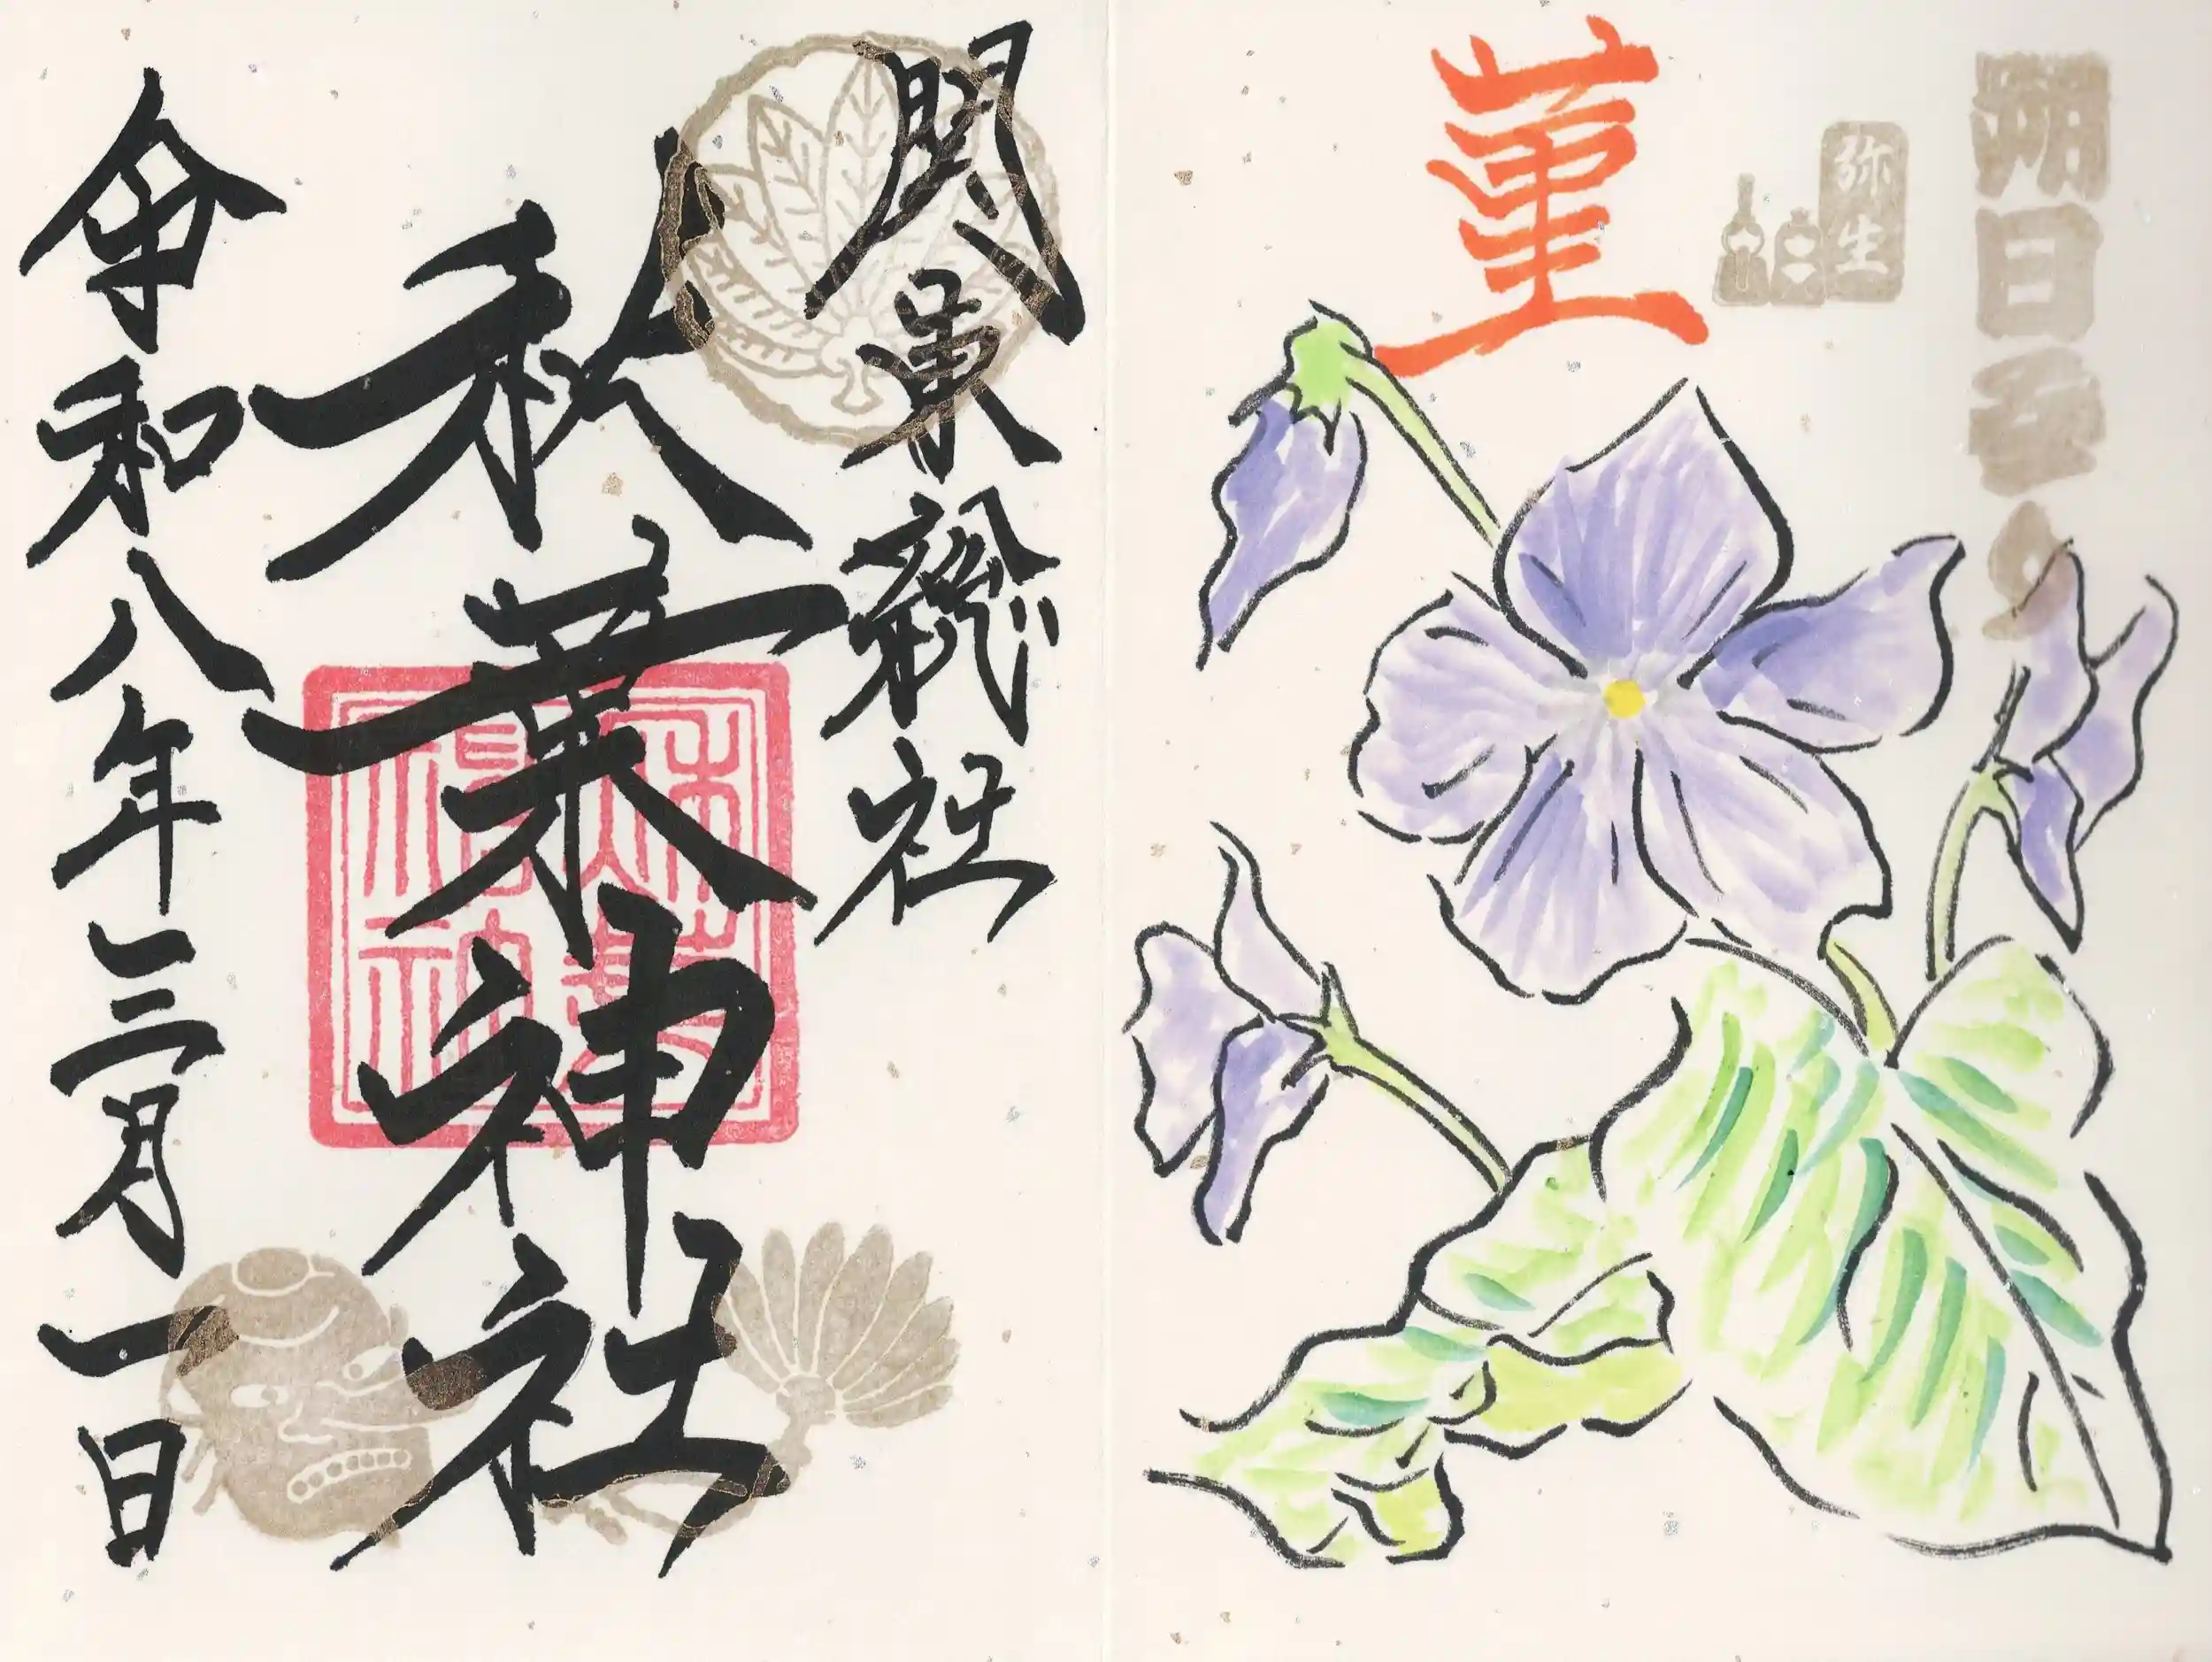 朔日参り
弥生
菫
関東総社
秋葉神社
令和八年三月一日